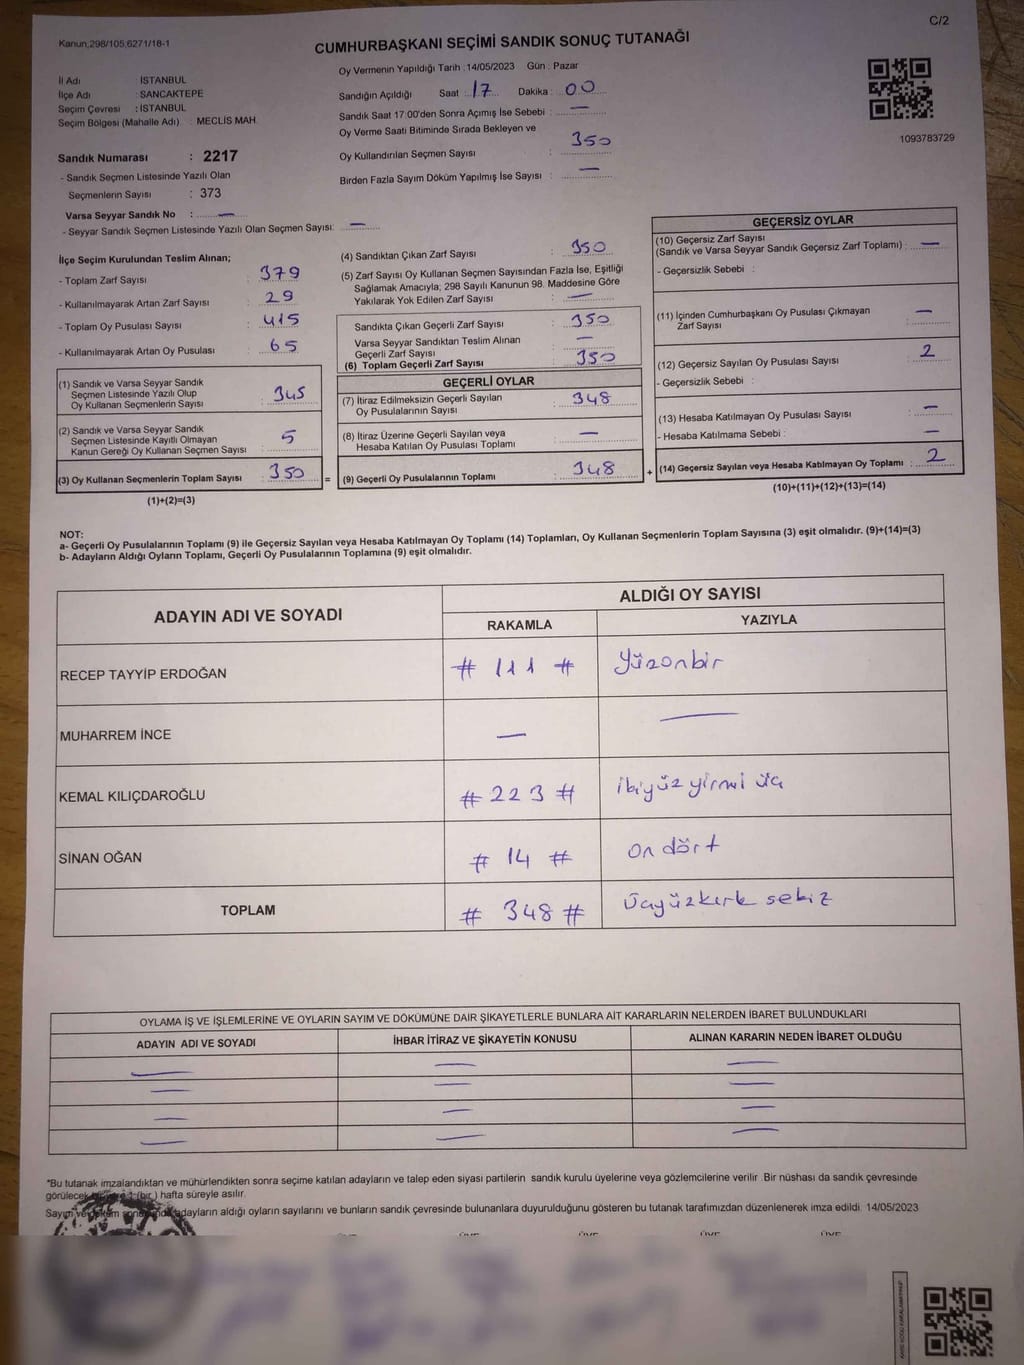 C/2
Kanun;298/105,6271/18-1
CUMHURBAŞKANI SEÇİMİ SANDIK SONUÇ TUTANAĞI
İl Adı : İSTANBUL
İlçe Adı : SANCAKTEPE
Seçim Çevresi : İSTANBUL
Seçim Bölgesi (Mahalle Adı) : MECLİS MAH.
Sandık Numarası : 2217
- Sandık Seçmen Listesinde Yazılı Olan
Seçmenlerin Sayısı : 373
Varsa Seyyar Sandık No : —
- Seyyar Sandık Seçmen Listesinde Yazılı Olan Seçmen Sayısı: —
Oy Vermenin Yapıldığı Tarih :14/05/2023 Gün : Pazar
Sandığın Açıldığı Saat : 17 Dakika : 00
Sandık Saat 17:00'den Sonra Açımış İse Sebebi : —
Oy Verme Saati Bitiminde Sırada Bekleyen ve
Oy Kullandırılan Seçmen Sayısı : 350
Birden Fazla Sayım Döküm Yapılmış İse Sayısı : —
1093783729
İlçe Seçim Kurulundan Teslim Alınan;
- Toplam Zarf Sayısı : 379
- Kullanılmayarak Artan Zarf Sayısı : 29
- Toplam Oy Pusulası Sayısı : 415
- Kullanılmayarak Artan Oy Pusulası : 65
(1) Sandık ve Varsa Seyyar Sandık
Seçmen Listesinde Yazılı Olup
Oy Kullanan Seçmenlerin Sayısı : 345
(2) Sandık ve Varsa Seyyar Sandık
Seçmen Listesinde Kayıtlı Olmayan
Kanun Gereği Oy Kullanan Seçmen Sayısı : 5
(3) Oy Kullanan Seçmenlerin Toplam Sayısı : 350
(1)+(2)=(3)
(4) Sandıktan Çıkan Zarf Sayısı : 350
(5) Zarf Sayısı Oy Kullanan Seçmen Sayısından Fazla İse, Eşitliği
Sağlamak Amacıyla; 298 Sayılı Kanunun 98. Maddesine Göre
Yakılarak Yok Edilen Zarf Sayısı : —
Sandıkta Çıkan Geçerli Zarf Sayısı : 350
Varsa Seyyar Sandıktan Teslim Alınan
Geçerli Zarf Sayısı : —
(6) Toplam Geçerli Zarf Sayısı : 350
GEÇERLİ OYLAR
(7) İtiraz Edilmeksizin Geçerli Sayılan
Oy Pusulalarının Sayısı : 348
(8) İtiraz Üzerine Geçerli Sayılan veya
Hesaba Katılan Oy Pusulası Toplamı : —
= (9) Geçerli Oy Pusulalarının Toplamı : 348
GEÇERSİZ OYLAR
(10) Geçersiz Zarf Sayısı
(Sandık ve Varsa Seyyar Sandık Geçersiz Zarf Toplamı) : —
- Geçersizlik Sebebi :
(11) İçinden Cumhurbaşkanı Oy Pusulası Çıkmayan
Zarf Sayısı : —
(12) Geçersiz Sayılan Oy Pusulası Sayısı : 2
- Geçersizlik Sebebi :
(13) Hesaba Katılmayan Oy Pusulası Sayısı : —
- Hesaba Katılmama Sebebi : —
+ (14) Geçersiz Sayılan veya Hesaba Katılmayan Oy Toplamı : 2
(10)+(11)+(12)+(13)=(14)
NOT:
a- Geçerli Oy Pusulalarının Toplamı (9) ile Geçersiz Sayılan veya Hesaba Katılmayan Oy Toplamı (14) Toplamları, Oy Kullanan Seçmenlerin Toplam Sayısına (3) eşit olmalıdır. (9)+(14)=(3)
b- Adayların Aldığı Oyların Toplamı, Geçerli Oy Pusulalarının Toplamına (9) eşit olmalıdır.
ADAYIN ADI VE SOYADI ALDIĞI OY SAYISI
RAKAMLA YAZIYLA
RECEP TAYYİP ERDOĞAN # 111 # Yüzonbir
MUHARREM İNCE — —
KEMAL KILIÇDAROĞLU # 223 # ikiyüz yirmi üç
SİNAN OĞAN # 14 # on dört
TOPLAM # 348 # üçyüzkırk sekiz
OYLAMA İŞ VE İŞLEMLERİNE VE OYLARIN SAYIM VE DÖKÜMÜNE DAİR ŞİKAYETLERLE BUNLARA AİT KARARLARIN NELERDEN İBARET BULUNDUKLARI
ADAYIN ADI VE SOYADI İHBAR İTİRAZ VE ŞİKAYETİN KONUSU ALINAN KARARIN NEDEN İBARET OLDUĞU
— — —
— — —
— — —
— — —
*Bu tutanak imzalandıktan ve mühürlendikten sonra seçime katılan adayların ve talep eden siyasi partilerin sandık kurulu üyelerine veya gözlemcilerine verilir. Bir nüshası da sandık çevresinde
görülecek 1 (bir ) hafta süreyle asılır.
Sayım ve adayların aldığı oyların sayılarını ve bunların sandık çevresinde bulunanlara duyurulduğunu gösteren bu tutanak tarafımızdan düzenlenerek imza edildi. 14/05/2023
ÜYE ÜYE ÜYE ÜYE ÜYE